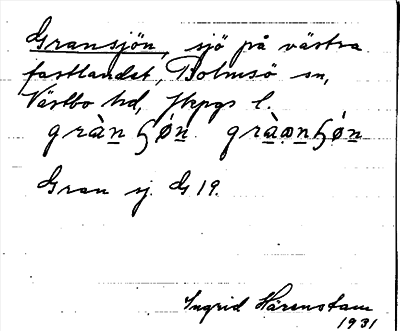 Gransjön, sjö på västra
fastlandet, Bolmsö sn,
Västbo hd, Jkpgs l.
gràn ɧǿn gràənɧǿn
Gran sj. G 19.
Ingrid Härenstam
1931